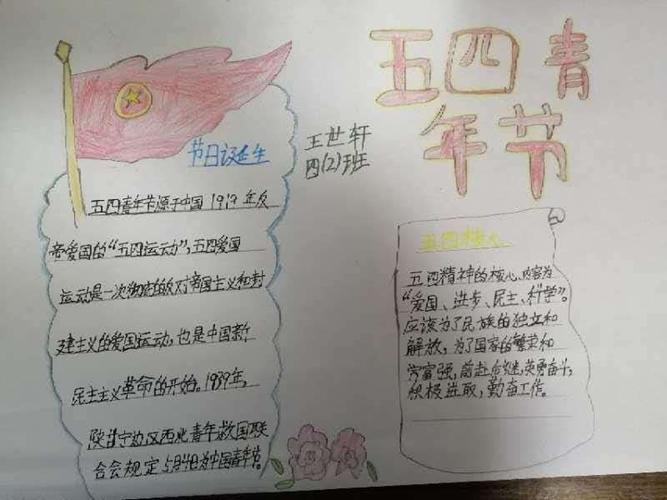 五四青
年节
王世轩
四(2)班
节日诞生
五四青年节源于中国1919年反
帝爱国的“五四运动”,五四爱国
运动是一次彻底的反对帝国主义和封
建主义的爱国运动,也是中国新
民主主义革命的开始。1939年,
陕甘宁边区西北青年救国联
合会规定5月4日为中国青年节。
五四核心
五四精神的核心内容为
“爱国、进步、民主、科学”。
应该为了民族的独立和
解放,为了国家的繁荣和
富强,前赴后继,英勇奋斗,
积极进取,勤奋工作。